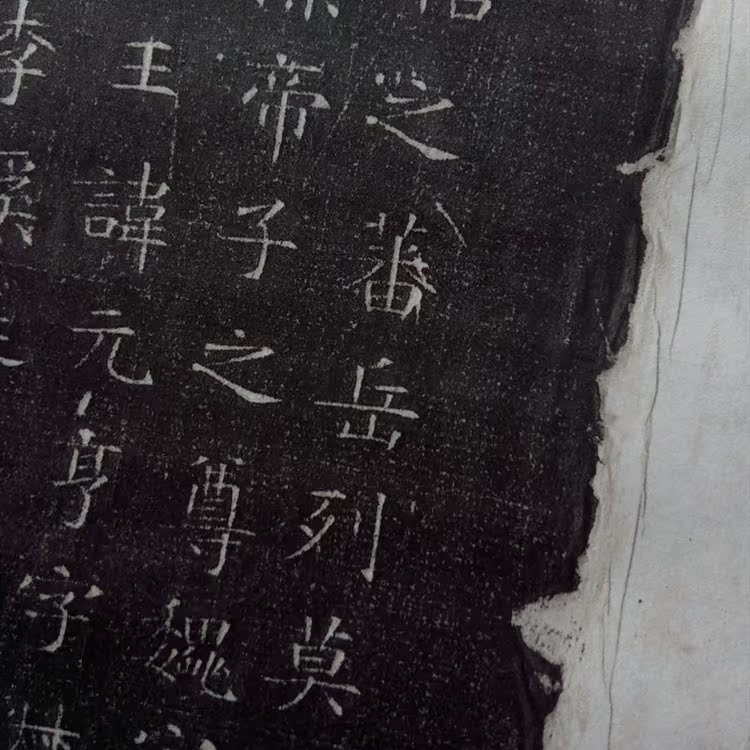 之蕃岳列莫
帝子之尊魏
王諱元亨字
李